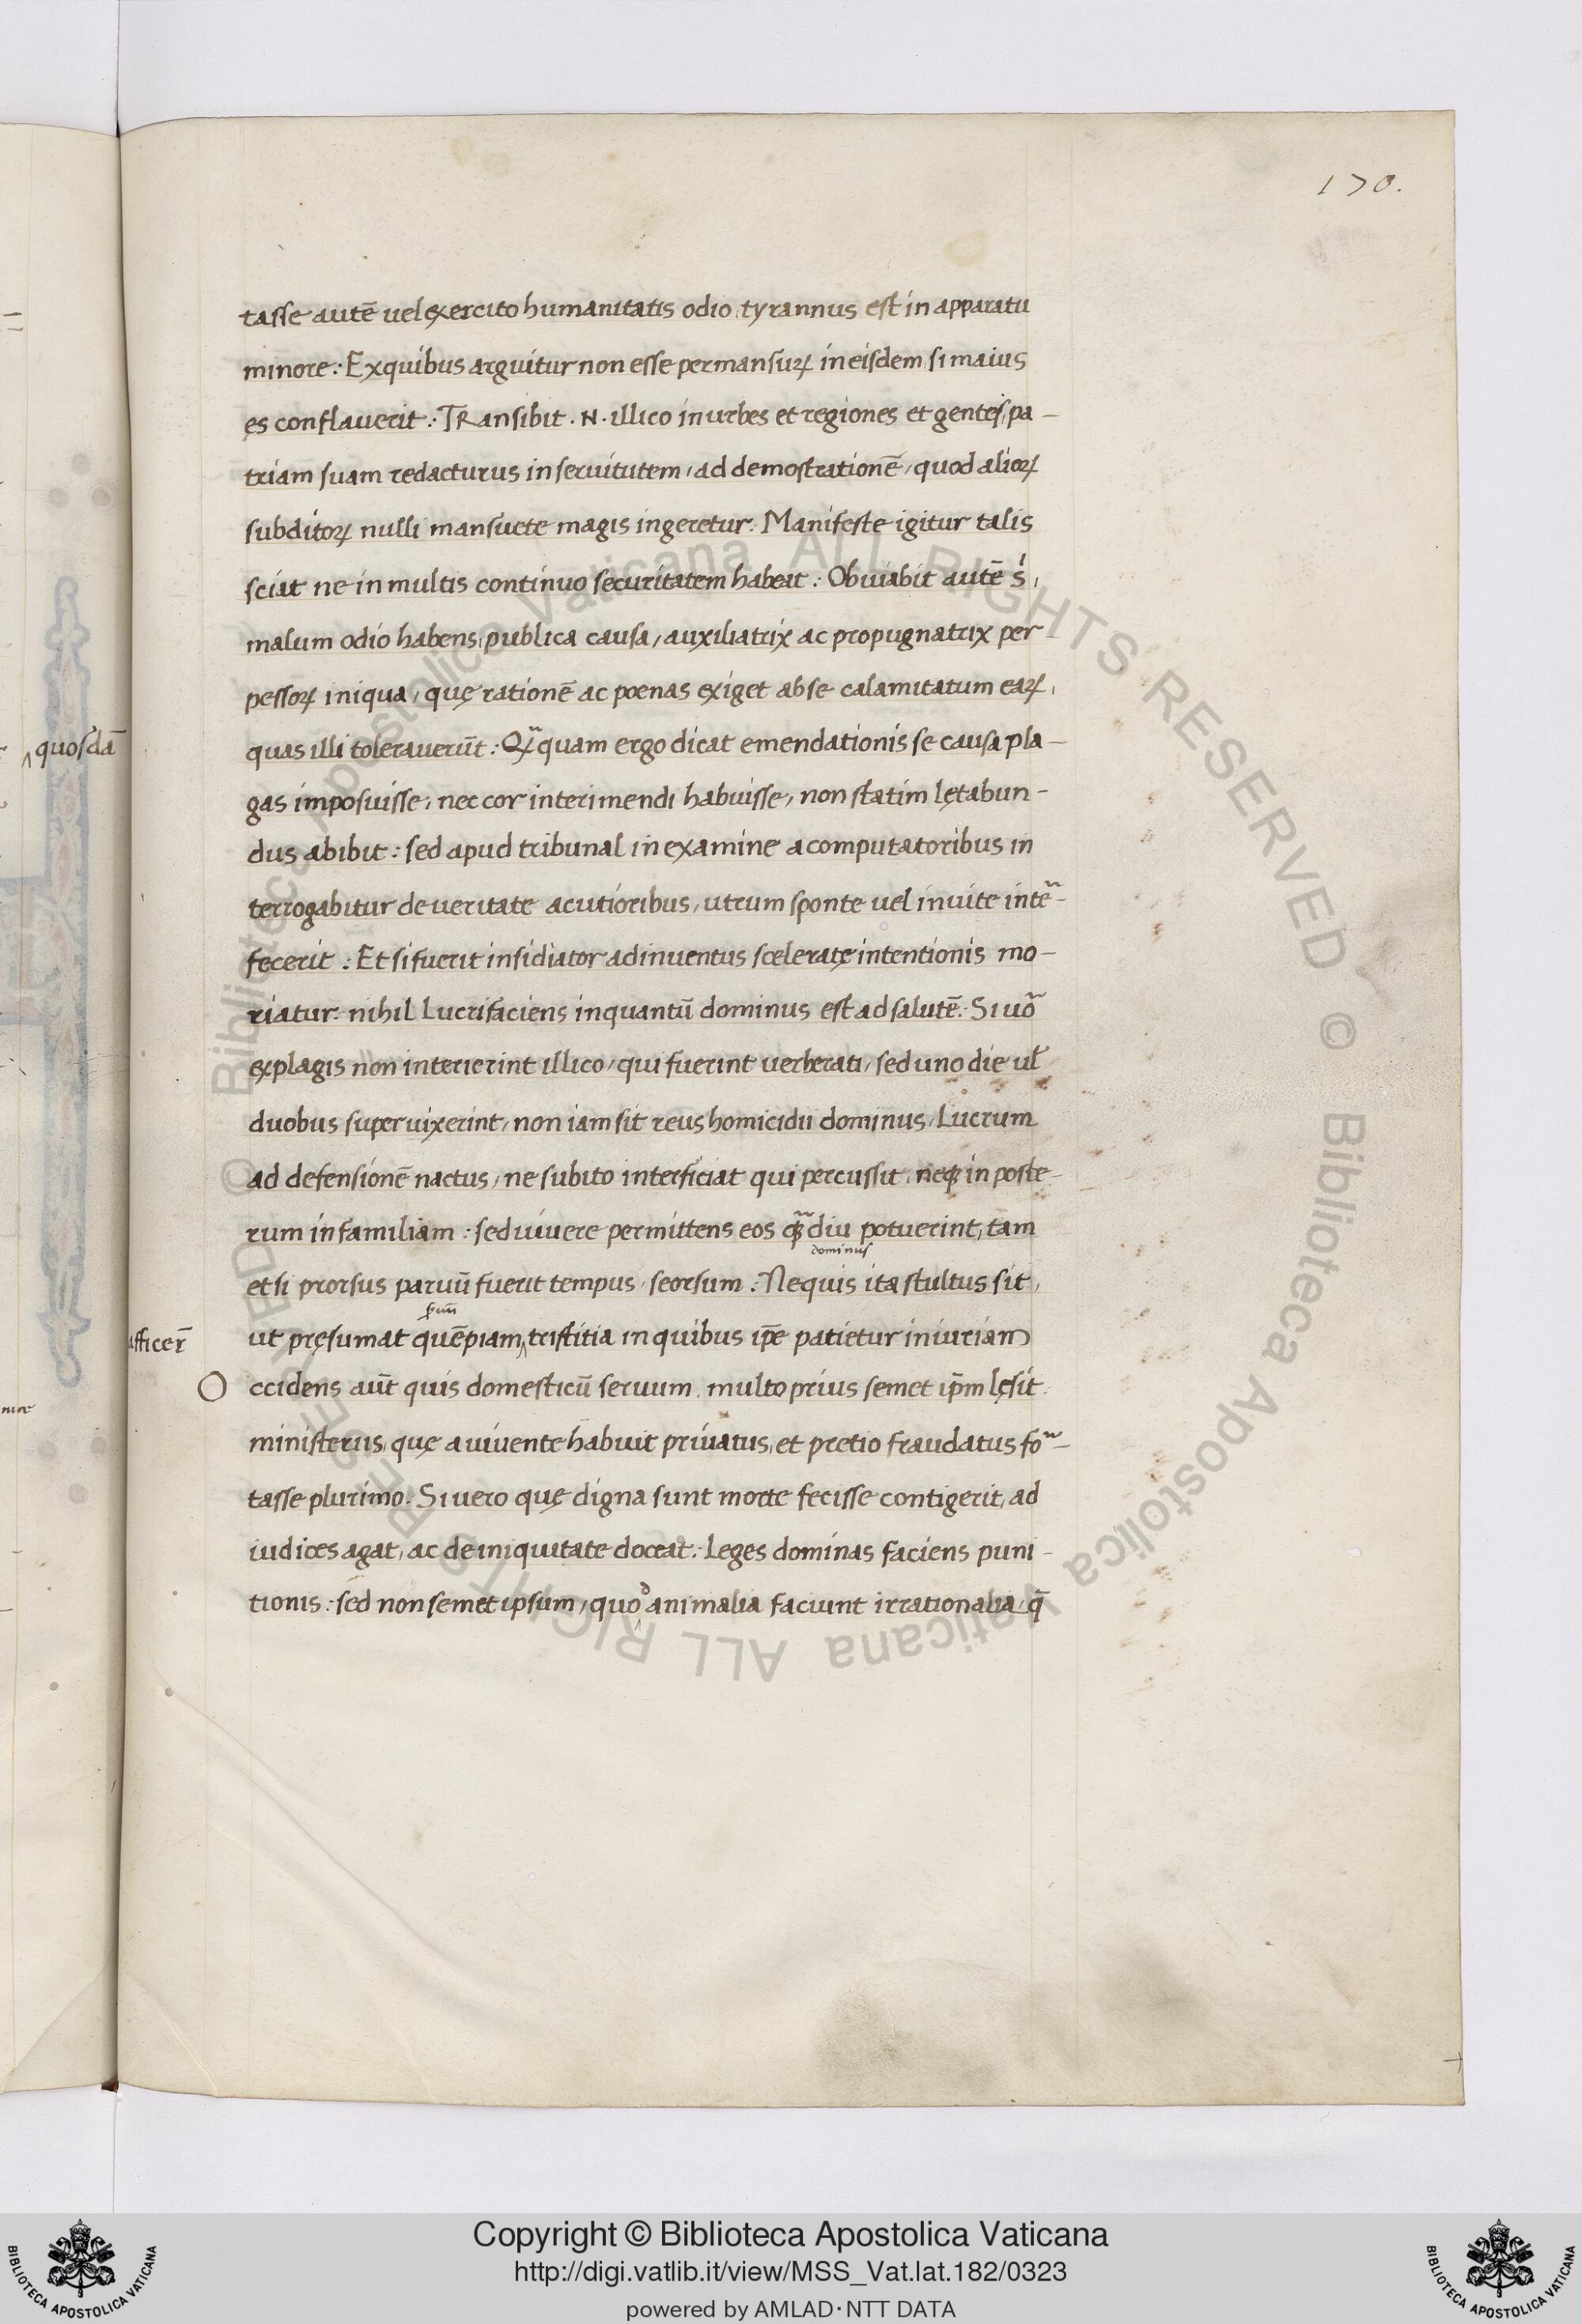 170.
tasse autē uel exercito humanitatis odio, tyrannus est in apparatu
minore: Ex quibus arguitur non esse permansuꝝ in eisdem, si maius
ęs conflauerit: TRansibit . N . illico in urbes et regiones et gentes, pa-
triam suam redacturus in seruitutem, ad demostrationē, quod alioꝝ
subditoꝝ nulli mansuete magis ingeretur. Manifeste igitur talis
sciat ne in multis continuo securitatem habeat: Obuiabit autē s̓,
malum odio habens, publica causa, auxiliatrix ac propugnatrix per-
pessoꝝ iniqua, quę rationē ac poenas exiget ab se calamitatum eaꝝ,
quas illi tolerauerūt: Qꝫ̃quam ergo dicat emendationis se causa pla-
quosdā
gas imposuisse, nec cor interimendi habuisse, non statim lętabun-
dus abibit: sed apud tribunal in examine a computatoribus in
terrogabitur de ueritate acutioribus, utrum sponte uel inuite intẽ-
fecerit: Et si fuerit insidiator adinuentus sceleratę intentionis mo-
riatur: nihil Lucrifaciens inquantū dominus est ad salutē: Si uõ
ex plagis non interierint illico, qui fuerint uerberati, sed uno die ul̃
duobus superuixerint, non iam sit reus homicidii dominus, Lucrum
ad defensionē nactus, ne subito interficiat qui percussit, neqꝫ in poste-
rum in familiam: sed uiuere permittens eos qꝫ̃diu potuerint, tam
dominus
et si prorsus paruū fuerit tempus, seorsum: Nequis ita stultus sit,
ut pręsumat quēpiam, tristitia in quibus ip̄e patietur iniuriam
afficer̄
Occidens aūt quis domesticū seruum, multo prius semet ip̄m lęsit
ministeriis, quę a uiuente habuit priuatus, et pretio fraudatus fõ-
tasse plurimo. Si uero quę digna sunt morte fecisse contigerit, ad
iudices agat, ac de iniquitate doceat: Leges dominas faciens puni-
tionis: sed non semet ipsum, quoº animalia faciunt irrationalia, q̄
© Biblioteca Apostolica Vaticana ALL RIGHTS RESERVED © Biblioteca Apostolica Vaticana ALL RIGHTS RESERVED
Copyright © Biblioteca Apostolica Vaticana
http://digi.vatlib.it/view/MSS_Vat.lat.182/0323
powered by AMLAD·NTT DATA
BIBLIOTECA APOSTOLICA VATICANA
BIBLIOTECA APOSTOLICA VATICANA